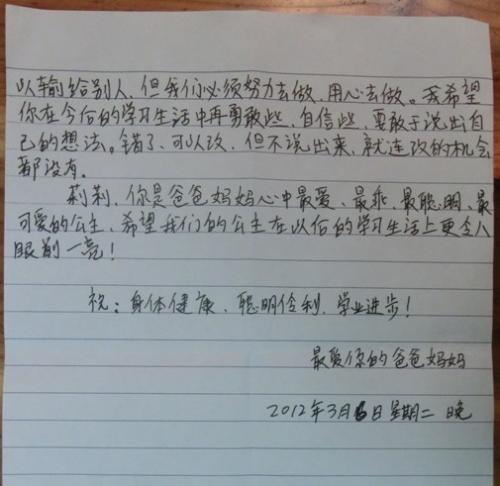 以输给别人，但我们必须努力去做，用心去做。我希望
你在今后的学习生活中再勇敢些，自信些，要敢于说出自
己的想法。错了，可以改，但不说出来，就连改的机会
都没有。
莉莉，你是爸爸妈妈心中最爱、最乖、最聪明、最
可爱的公主，希望我们的公主在以后的学习生活上更令人
眼前一亮！
祝：身体健康、聪明伶利、学业进步！
最爱你的爸爸妈妈
2012年3月6日星期二 晚